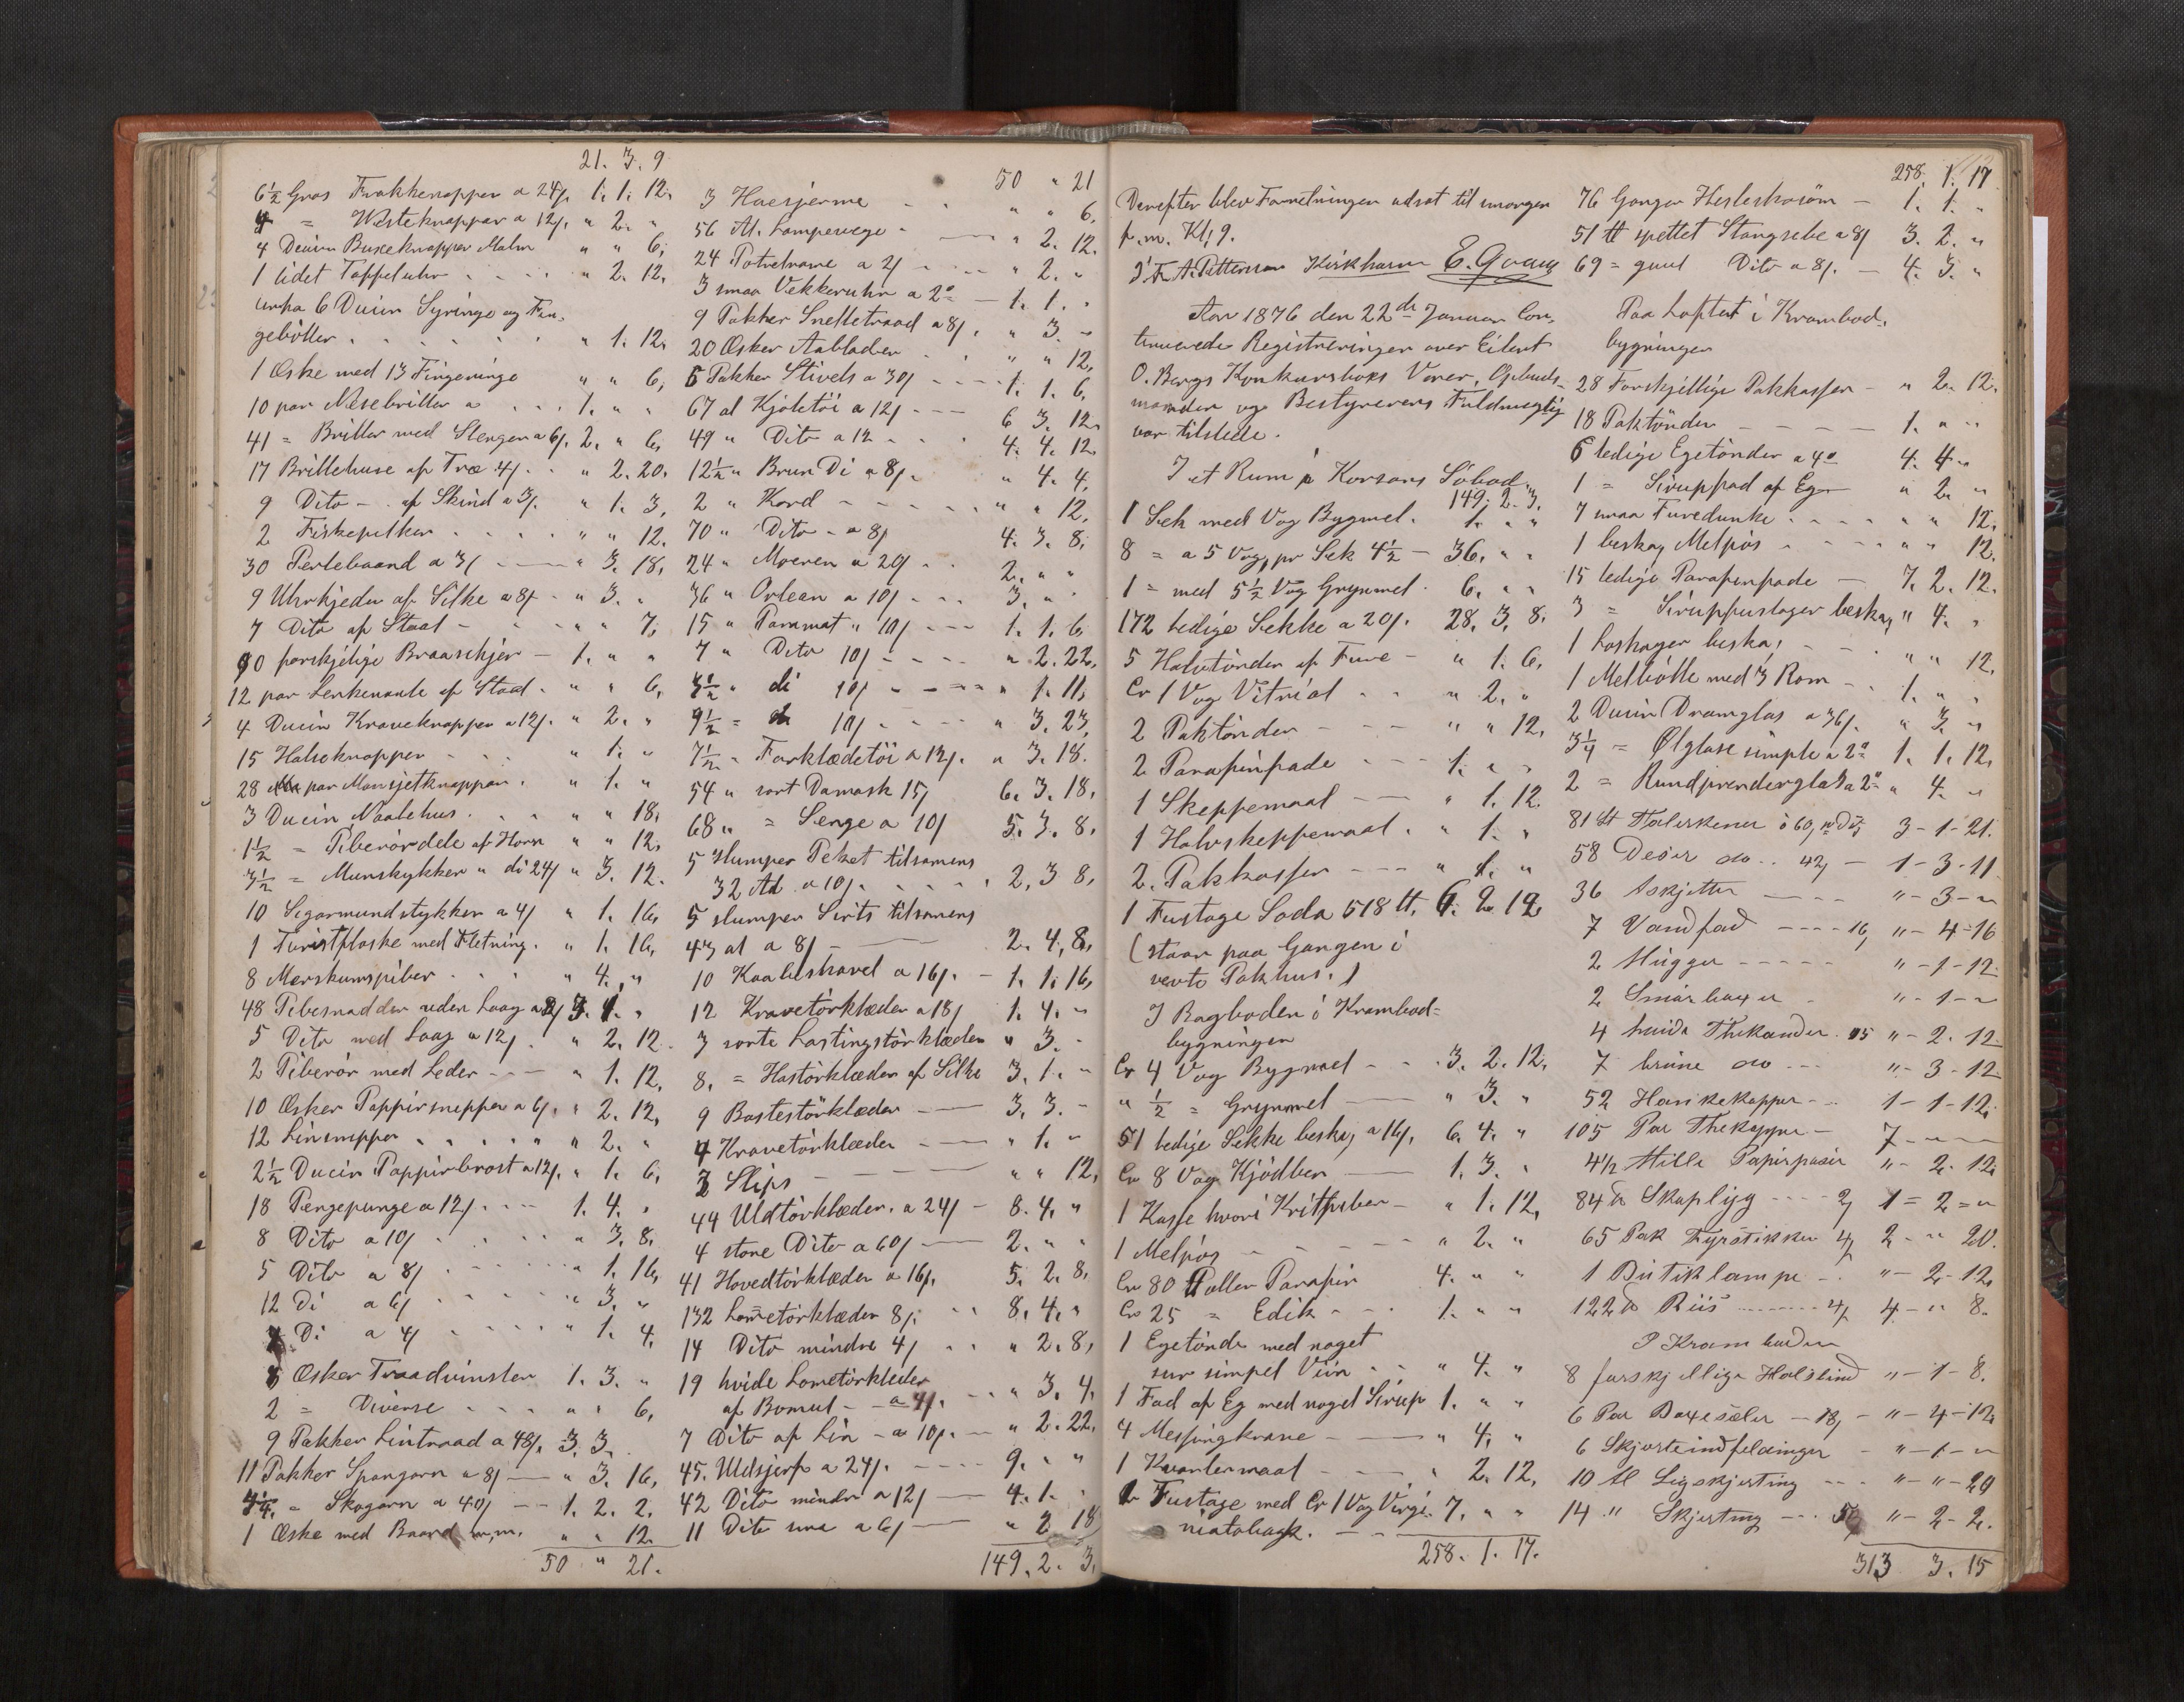 21. 3. 9
6½ Gros Frakkenapper a 24/. 1. 1. 12.
4 = Westeknapper a 12/. " 2. "
4 Ducin Buxeknapper Malm " " 6.
1 lidet Taffeluhr . . . . " 2. 12.
cirka 6 Ducin Syringe og Fin-
gebøller . . . . . . . " 1. 12.
1 Æske med 13 Fingeringe " " 6.
10 par Nesebriller a . . . 1. " "
41 = Briller med Stenger a 6/. 2. " 6.
17 Brillehuse af Træ 4/. . " 2. 20.
9 Dito - . af Skind a 3/. " 1. 3.
2 Fiskepilker . . . . . " " 12.
30 Perlebaand a 3/ — " 3. 18.
9 Uhrkjeder af Silke a 8/ - " 3. "
7 Dito af Staal - - - " " 7.
10 forskjelige Braaschjer — 1. " "
12 par Lenkenaale af Staal . " " 6.
4 Ducin Kraveknapper a 12/. " 2. "
15 Halseknapper - . . " 1. "
28 par Mansjetknapper . " 1. "
3 Ducin Naalehus . . . " " 18.
1½ = Piberørdele af Horn " " 12.
3½ = Munstykker " di 24/ " 3. 12.
10 Segarmundstykker a 4/ " 1. 16.
1 Turistflaske med Fletning. " 1. 16.
8 Merskumspiber . . . " 4. "
48 Pibesnadder uden Laag a 8/ 3. 1. "
5 Dito med Laag a 12/ . " 2. 12.
2 Piberør med Leder - - - " 1. 12.
10 Æsker Pappirsnipper a 6/. " 2. 12.
12 Linsnipper . . . . . " 2. "
2½ Ducin Pappirbrøst a 12/. " 1. 6.
18 Pengepunge a 12/ . . - 1. 4. "
8 Dito a 10/ . . . . " 3. 8.
5 Dito a 8/ . . . . " 1. 16.
12 Di a 6/ . . . . " 3. "
7 Di a 4/ . . . . " 1. 4.
8 Æsker Traadvinsler 1. 3. "
2 = Diverse . . . " " 6.
9 Pakker Lintraad a 48/. 3. 3.
11 Pakker Spangarn a 8/ — " 3. 16.
4¼ = Skogarn a 40/ — 1. 2. 2.
1 Æske med Baand m.m. " " 12.
50 " 21.
50 " 21
3 Haesjerme . . " " 6.
56 Al. Lampevæge . — " 2. 12.
24 a 2/ . . . " 2. "
3 smaa Vekkeruhr a 2 — 1. 1. "
9 Pakker Snelletraad a 8/. " 3. "
20 Æsker Aablader . . " " 12.
6 Pakker Stivels a 30/ - - - 1. 1. 6.
67 al Kjoletøi a 12/ - - - 6 3. 12.
49 " Dito a 12 . . . 4. 4. 12.
12½ " Brun Di a 8/. " 4. 4.
2 " Kord - - - - " " 12.
70 " Dito - a 8/ 4. 3. 8.
24 " Moeren a 20/ . . 2. " "
36 " Orlean a 10/ . . . 3. " "
15 " Paramat " 10/ - - - 1. 1. 6.
7 " Dito 10/ - - - " 2. 22.
3½ " di 10/ - - - " 1. 11.
9½ = di 10/ - - - " 3. 23.
7½ = Forklædetøi a 12/. " 3. 18.
54 " sort Damask 15/ 6. 3. 18.
68 " = Senge a 10/ 5. 3. 8.
5 slumper Peket tilsamens
32 Al a 10/. . . . . . 2. 3 8.
5 slumper Sirts tilsamens
43 al a 8/ — 2. 4. 8.
10 Kaabeshavel a 16/. - 1. 1. 16.
12 Kravetørklæder a 18/ 1. 4. "
3 sorte Lastingstørklæder " 3. "
8. = Halstørklæder af Silke 3. 1. "
9 Bastestørklæder — 3. 3. "
4 Kravetørklæder — " 1. "
3 Slips — " " 12.
44 Uldtørklæder. a 24/ - 8. 4. "
4 store Dito a 60/ — 2. " "
41 Hovedtørklæder a 16/. 5. 2. 8.
132 Lometørklæder 8/. . . 8. 4. "
14 Dito mindre 4/ . . " 2. 8.
19 hvide Lometørkleder
af Bomul - a 4/. . . " 3. 4.
7 Dito af Lin - a 10/. — " 2. 22.
45. Uldsjerf a 24/. - - - 9. " "
42 Dito mindre a 12/ — 4. 1. "
11 Dito sma a 6/ — " 2 18
149. 2. 3.
Derefter blev Forretningen udsat til morgen
f.m. Kl. 9.
A. Pettersen Kirkhorn E. Qvam
Aar 1876 den 22de Januar Con-
tinuerede Registreringen over Eilert
O. Bergs Konkursboes Varer, Opbuds-
manden og Bestyrerens Fuldmegtig
var tilstede.
I et Rum i Korsens Søbod.
149. 2. 3.
1 Sek med Vog Bygmel. 1. " "
8 = a 5 Vog, pr Sek 4½ — 36. " "
1 = med 5½ Vog Grynmel . 6. " "
172 ledige Sekke a 20/. 28. 3. 8.
5 Halvtønder af Furu — " 1. 6.
Cr 1 Vog Vitriol . . " 2. "
2 Paktønder - - - " " 12.
2 Parafinfade - - - 1. " "
1 Skeppemaal — " 1. 12.
1 Halvskeppemaal . " 1. "
2. Pakkasser - - - " 1. "
1 Fustage Soda 518 ℔. 6. 2. 12.
(staar paa Gangen i
vevte Pakhus.)
I Bagboden i Krambod-
bygningen
Cr 4 Vog Bygmel - - . 3. 2. 12.
" ½ = Grynmel — " 3. "
51 ledige Sekke beska, a 16/. 6. 4. "
Cr 8 Vog Kjødben — 1. 3. "
1 Kasse hvori Kritpiber — " 1. 12.
1 Melpøs - - - " 2. "
Cr 80 Potter Parafin 4. " "
Cr 25 = Edik - - . 1. " "
1 Egetønde med noget
sur simpel Viin . . " 4. "
1 Fad af Eg med noget Sirup 1. " "
4 Messingkrane - — " 4. "
1 Kvartermaal - - - . 2. 12.
1 Fustage med Cr 1 Vog Virgi- 7. " "
niatoback. — -
258. 1. 17.
258. 1. 17
76 Gonger Hesleskosøm — 1. 1. "
51 ℔ spettet Stangsebe a 8/ 3. 2. "
69 = guul Dito a 8/. — 4. 3. "
Paa Loftet i Krambod-
bygningen
28 Forskjellige Pakkasser — " 2. 12.
18 Paktønder - - - - 1. " "
6 ledige Egetønder a 4 4. 4. "
1 = Siruppad af Eg — " 2. "
7 smaa Furedunke . . . . " " 12.
1 beskag Melpøs . . . " " 12.
15 ledige Parafinfade — 7. 2. 12.
3 = Sirupfustager beskag " 4. "
1 beska, - - . " " 12.
1 Melbøtte med 3 Rom - . 1. " "
2 Ducin Dramglas a 36/. " 3. "
3¼ = Ølglase simple a 2 1. 1. 12.
2 = a 2 " 4. "
81 ℔ Talerkener a 60, 3 - 1 - 21.
58 Deser do . . 42, — 1 - 3 - 11
36 Askjetter - - - " - 3 - "
7 Vandfad - - - - 16, " - 4 - 16
2 Mugger - - - - - " - 1 - 12.
2 - " - 1 - "
4 hvide Thekander . 15 " - 2. 12
7 brune do - - - " - 3 - 12
52 Hankekopper - - . 1 - 1 - 12.
105 Par Thekopper — 7 - " -
4½ Mille Papirposer " - 2. 12.
84 ℔ Skaplyg - - - - 2, 1 = 2 = "
65 Pak Fyrstikker 4, 2 - " 20.
1 Butiklampe - . " - 2 - 12.
122 ℔ Riis - - - - 4, 4 - " 8.
I Kramboden
8 forskjellige Halslind " - 1 - 8.
6 Par Buxeseler - 18, - " - 4 - 12.
6 Skjorteindfeldninger - " - 1 - "
10 Al Ligskjerting - - - " - " - 20
14 " Skjerting - - . " - 2 - 2.
313 3. 15